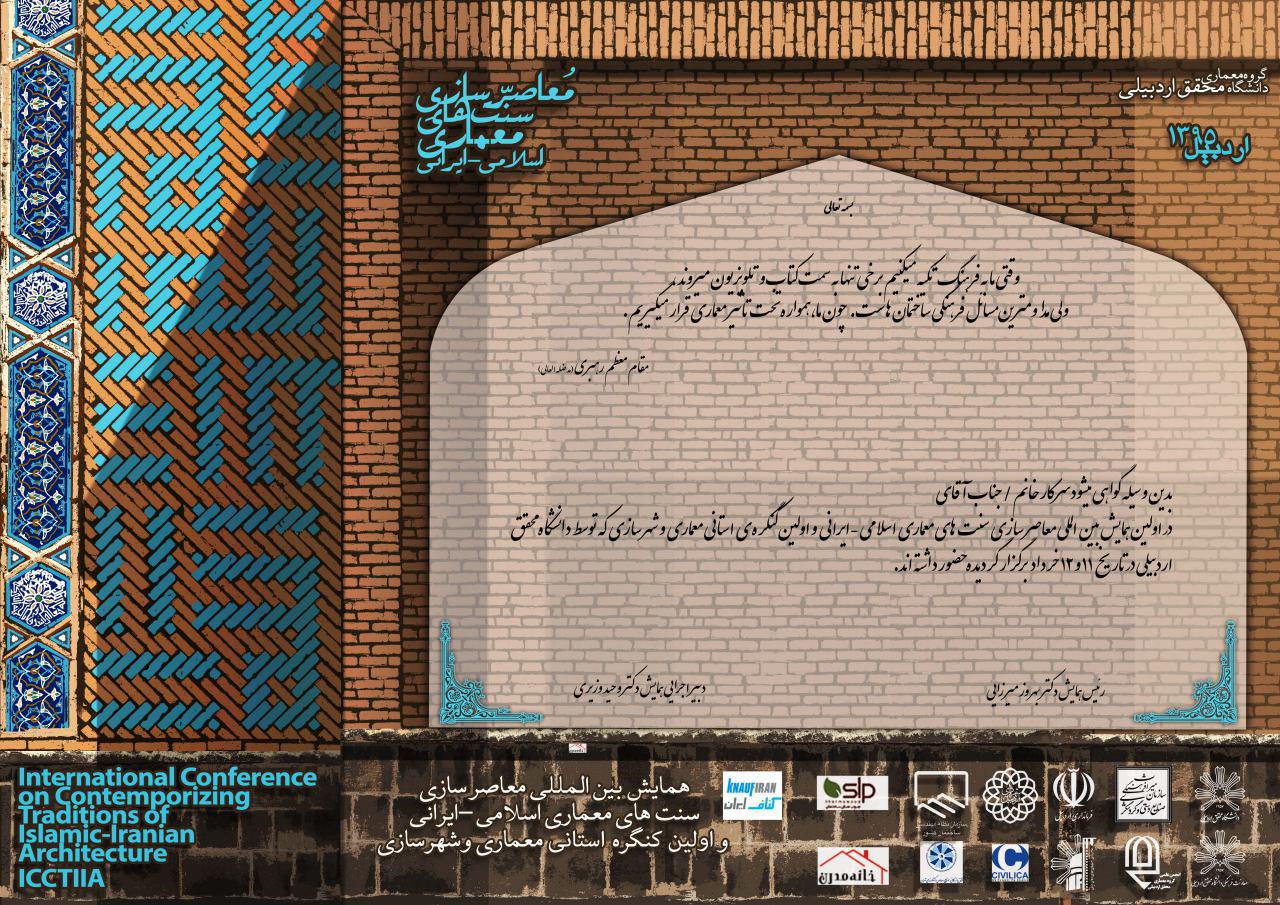 گروه معماری
دانشگاه محقق اردبیلی
۱۳۹۵
اردبیل
مُعاصرسازی
سنت‌های
معماری
اسلامی-ایرانی
بسمه تعالی
وقتی ما به فرهنگ تکیه میکنیم برخی تنها به سمت کتاب و تلویزیون میروند
ولی مداومترین مسائل فرهنگی ساختمان هاست. چون ما، همواره تحت تأثیر معماری قرار میگیریم.
مقام معظم رهبری (مدظله العالی)
بدین وسیله گواهی میشود سرکار خانم / جناب آقای
در اولین همایش بین المللی معاصر سازی سنت های معماری اسلامی - ایرانی و اولین کنگره ی استانی معماری و شهرسازی که توسط دانشگاه محقق
اردبیلی در تاریخ ۱۱ و ۱۲ خرداد برگزار گردیده حضور داشته اند.
رئیس همایش دکتر بهروز میرزایی
دبیر اجرایی همایش دکتر وحید وزیری
International Conference
on Contemporizing
Traditions of
Islamic-Iranian
Architecture
ICCTIIA
همایش بین المللی معاصر سازی
سنت های معماری اسلامی -ایرانی
و اولین کنگره استانی معماری وشهرسازی
KNAUF IRAN
کناف ایران
slp
thermowood
سازمان نظام مهندسی
ساختمان کشور
فرمانداری اردبیل
دانشگاه محقق اردبیلی
خانه مدرن
CIVILICA
انجمن علمی
گروه معماری
محقق اردبیلی
معاونت فرهنگی دانشگاه محقق اردبیلی